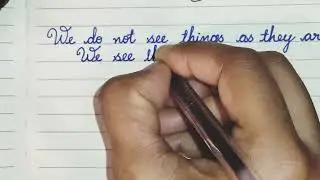 We do not see things as they ar
We see th